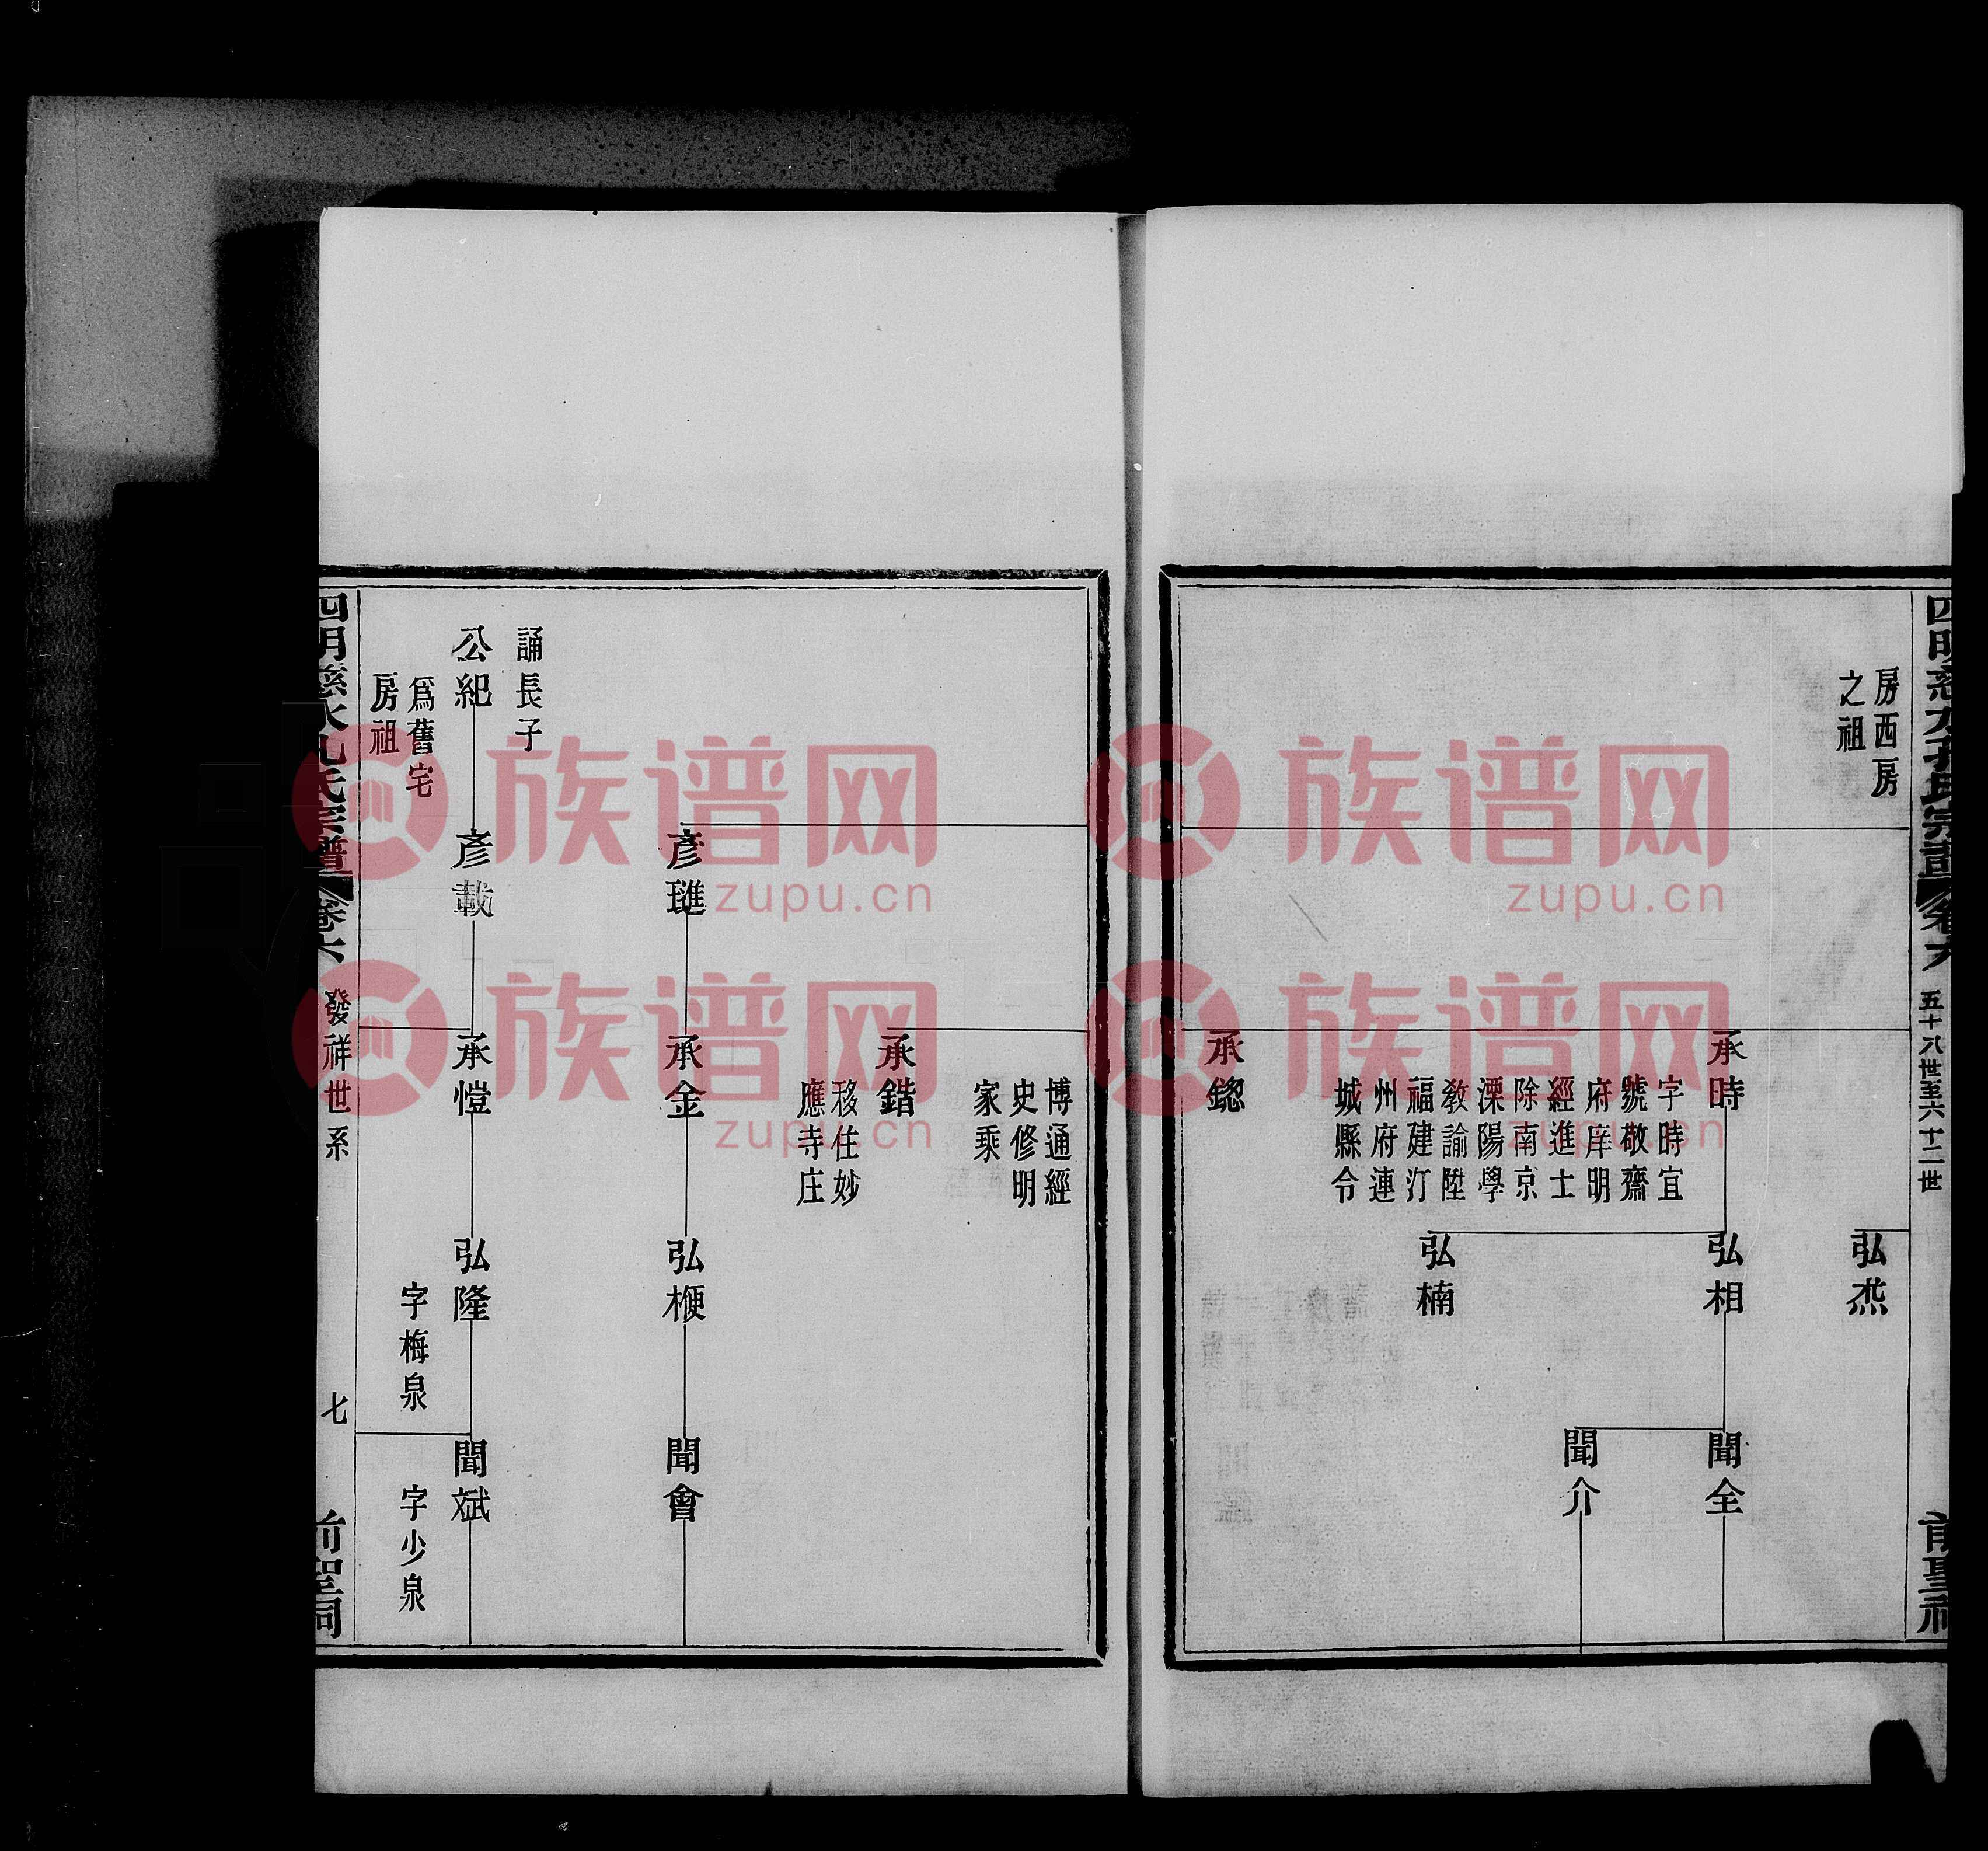 四明慈水孔氏宗譜 卷六 五十八世至六十二世 前聖祠
房西房
之祖
弘杰
承時
字時宜
號敬齋
府庠明
經進士
除南京
溧陽學
教諭陞
福建汀
州府連
城縣令
弘相
聞全
聞介
弘楠
承鍯
博通經
史修明
家乘
承鍇
移住妙
應寺庄
彥璡
承金
弘楩
聞會
誦長子
公紀
為舊宅
房祖
彥載
承愷
弘隆
字梅泉
聞斌
字少泉
四明慈水孔氏宗譜 卷六 發祥世系 七 前聖祠
族谱网
zupu.cn
族谱网
zupu.cn
族谱网
zupu.cn
族谱网
zupu.cn